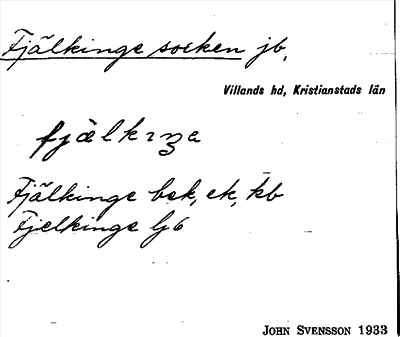 Fjälkinge socken jb,
Villands hd, Kristianstads län
fjälkıꝫa
Fjälkinge bsk, ek, kb
Fjelkinge lj6
JOHN SVENSSON 1933